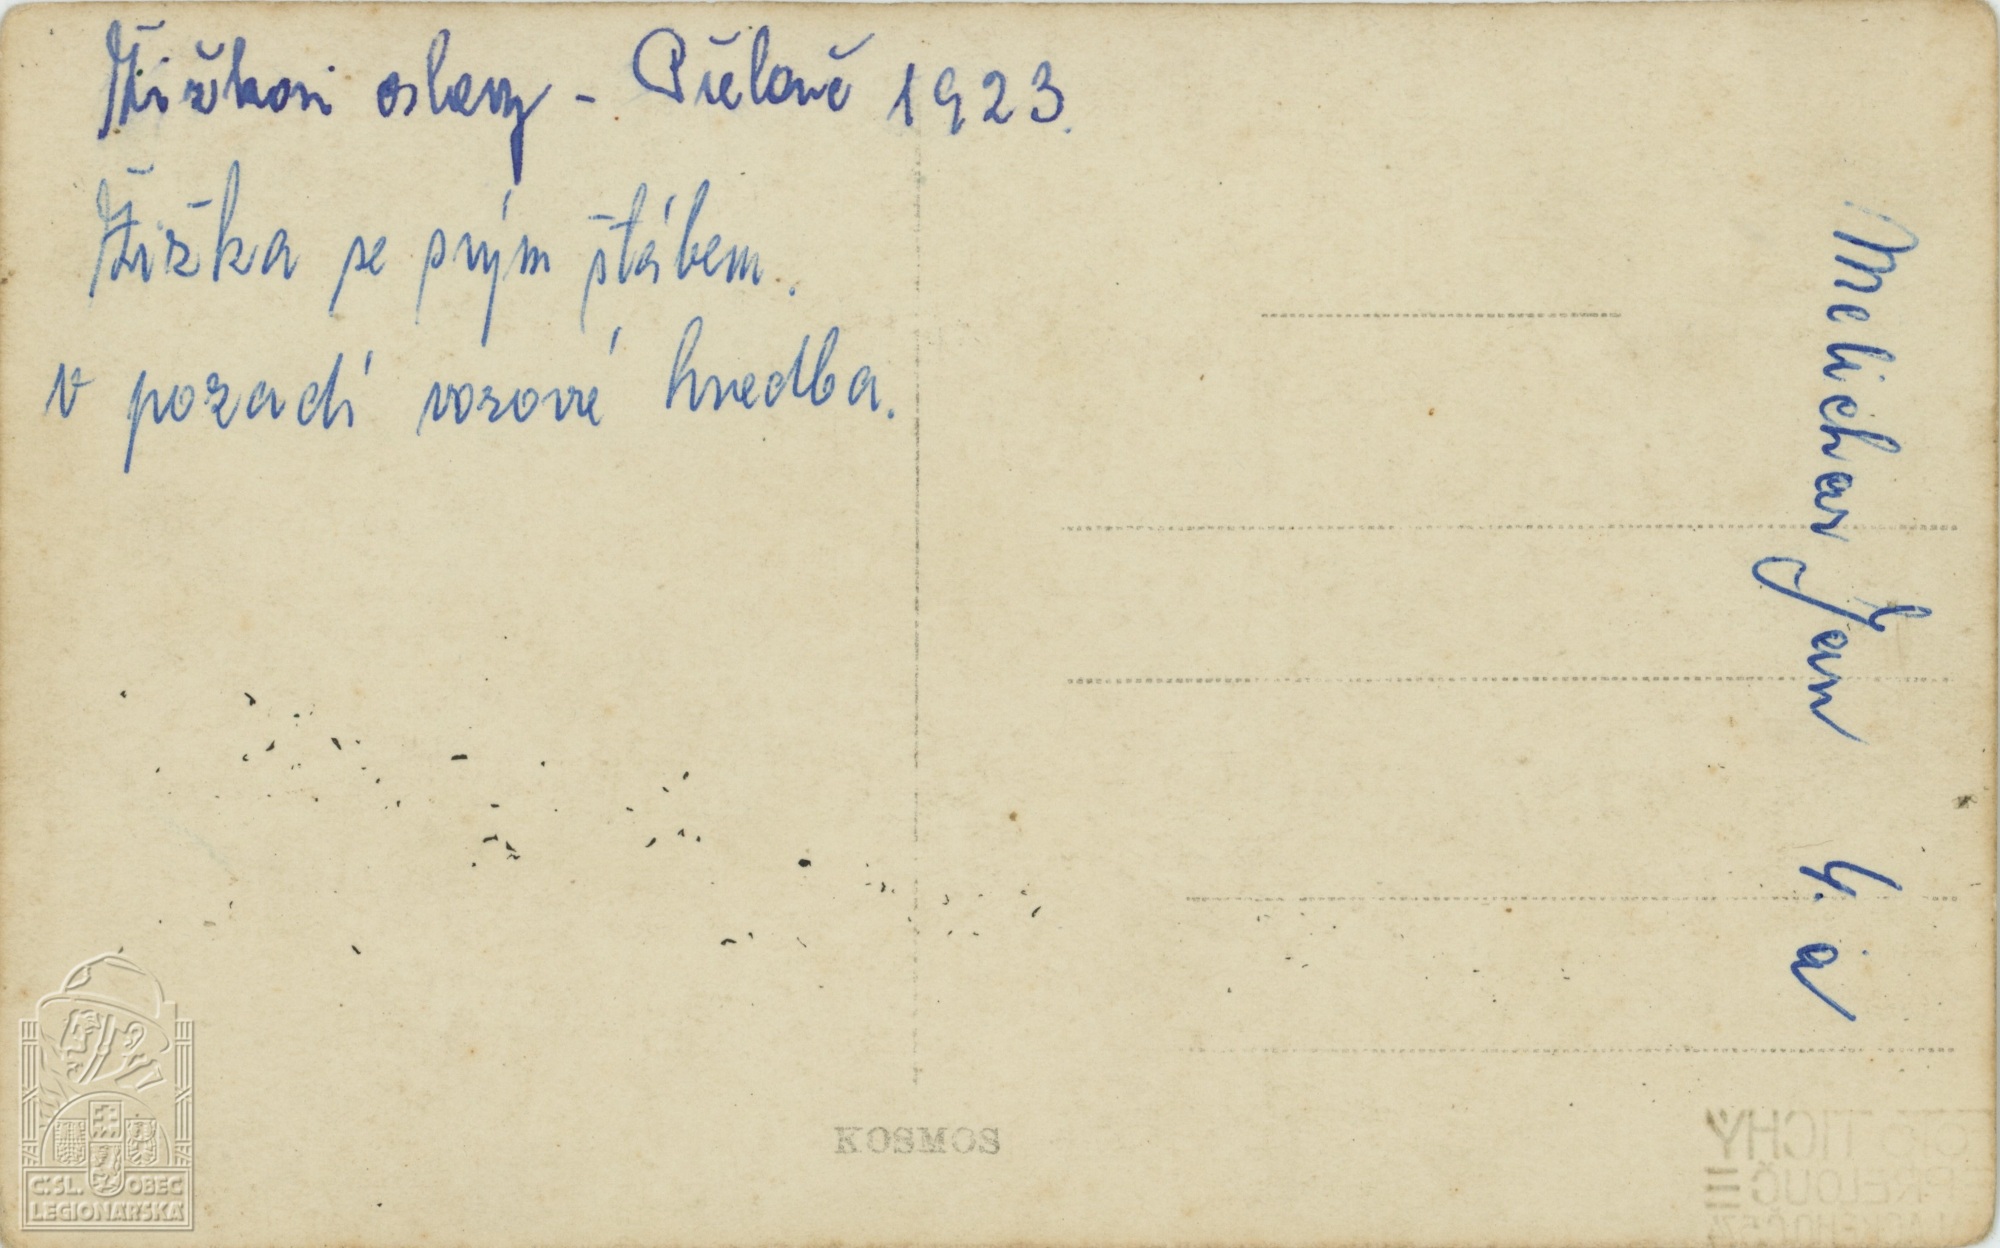 Žižkovi oslavy - Přelouč 1923.
Žižka se svým štábem.
v pozadí vozová hradba.
Melichar Jan 4. a
KOSMOS
FOTO TICHÝ
PŘELOUČ
Č:SL. OBEC
LEGIONÁŘSKÁ